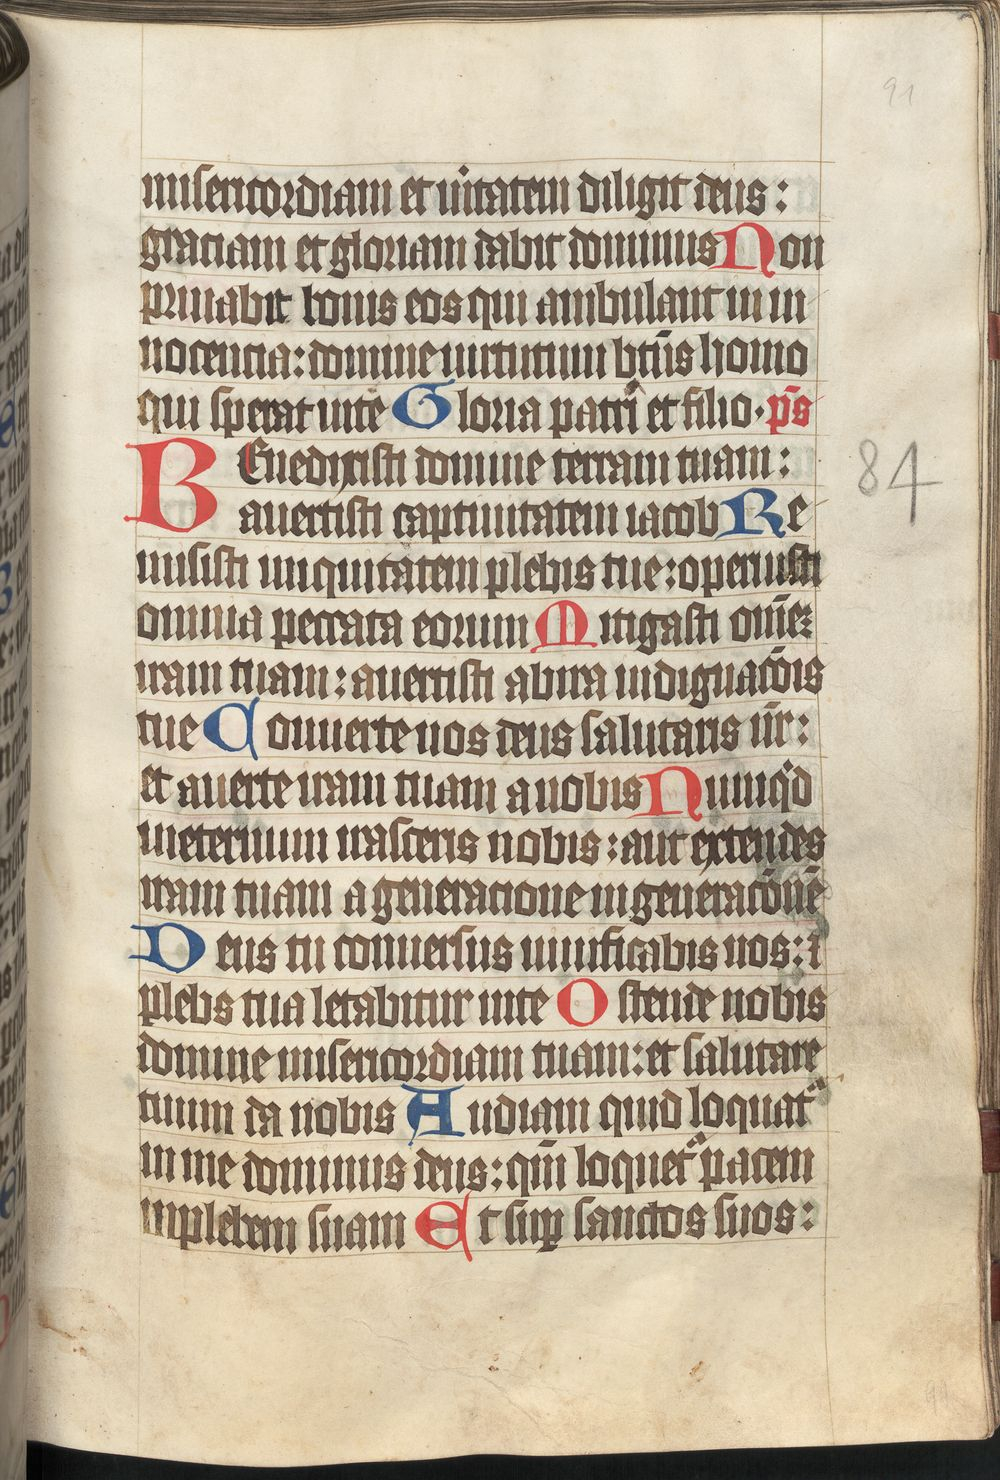 91
misericordiam et ūitatem diligit deus :
graciam et gloriam dabit dominus Non
priuabit bonis eos qui ambulant in in
nocencia : domine uirtutum bt̄us homo
qui sperat inte Gloria patri et filio · ps̄
BEnedixisti domine terram tuam :
auertisti captiuitatem iacob Re
misisti iniquitatem plebis tue : operuisti
omnia peccata eorum Mitigasti om̄ez
iram tuam : auertisti abira indignacōis
tue Conuerte nos deus salutaris nr̄ :
et auerte iram tuam a nobis Nunqd
ineternum irasceris nobis : aut extendes
iram tuam a generacione in generacōnē
Deus tu conuersus uiuificabis nos : ⁊
plebs tua letabitur inte Ostende nobis
domine misericordiam tuam : et salutare
tuum da nobis Audiam quid loquat᷑
in me dominus deus : qm̄ loquet᷑ pacem
inplebem suam Et suꝑ sanctos suos :
84